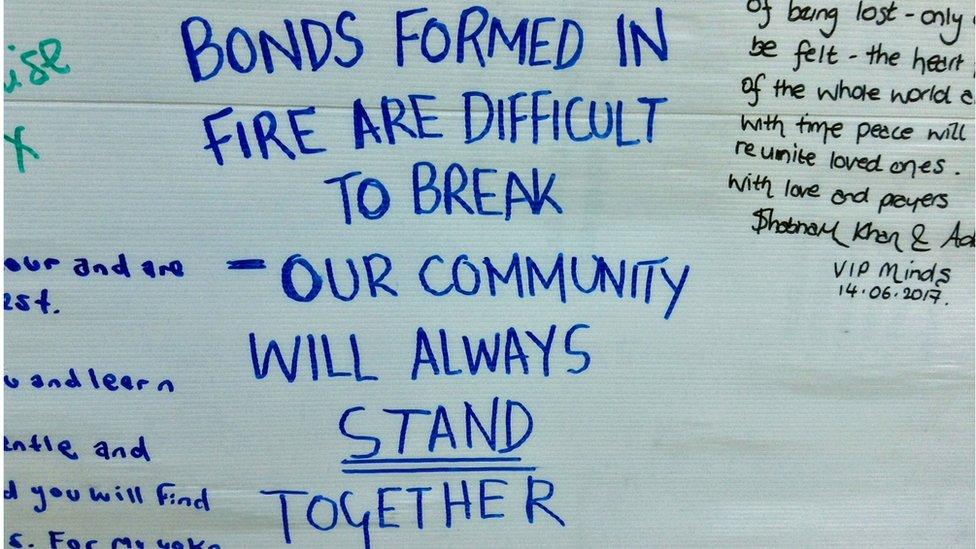 ise
x
our and are
est.
and learn
entle and
d you will find
s. For my yoke
BONDS FORMED IN
FIRE ARE DIFFICULT
TO BREAK
- OUR COMMUNITY
WILL ALWAYS
STAND
TOGETHER
of being lost - only
be felt - the heart
of the whole world
with time peace will
reunite loved ones.
with love and prayers
Shabnam Khan &
VIP Minds
14.06.2017.